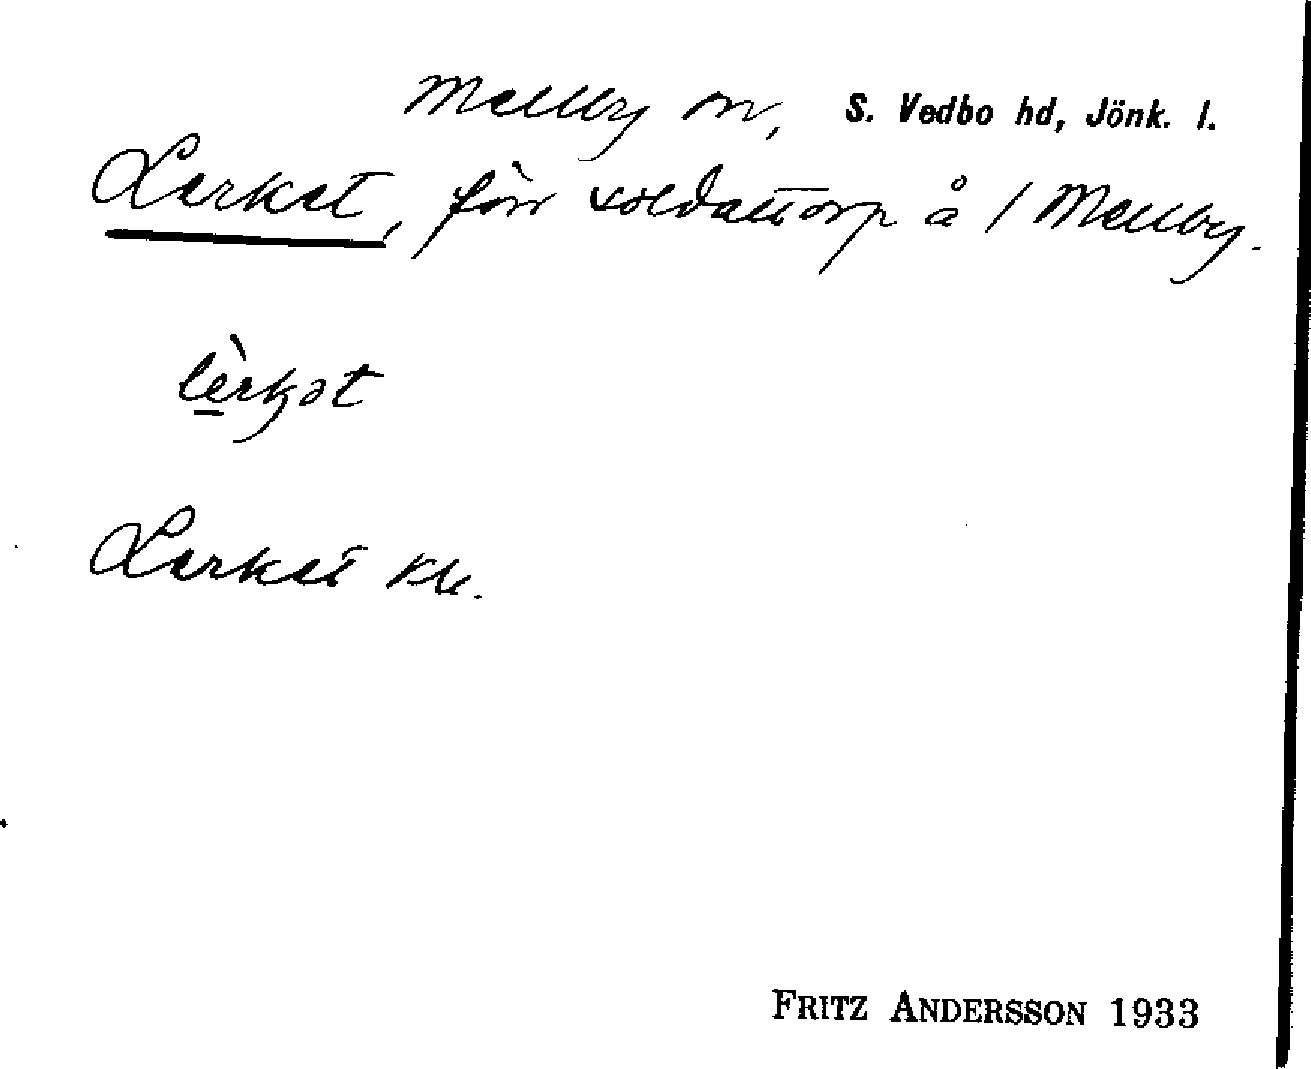 Mellby sn, S. Vedbo hd, Jönk. l.
Lerket, förr soldattorp å 1 Mellby.
lèrkət
Lerket klr.
FRITZ ANDERSSON 1933